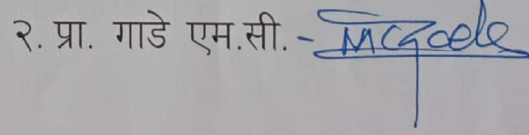 २. प्रा. गाडे एम.सी. - MCGade